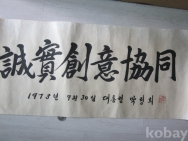 誠實創意協同
1973년 9月 30일 대통령 박정희
kobay